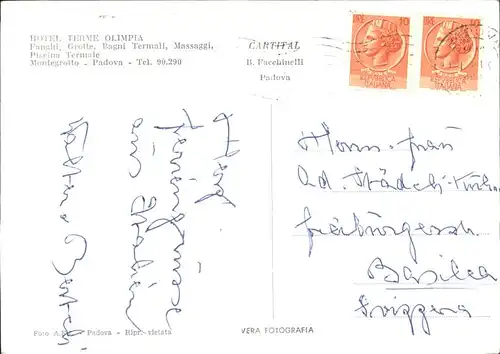 HOTEL TERME OLIMPIA
Fanghi, Grotte, Bagni Termali, Massaggi,
Piscina Termale
Montegrotto - Padova - Tel. 90.290
CARTITAL
B. Facchinelli
Padova
Herzl.
Feriengrüsse
aus Italien
Herrn. Frau
Ad. Städeli
Freiburgerstr.
Basilea
Svizzera
Padova - Ripr. vietata
VERA FOTOGRAFIA